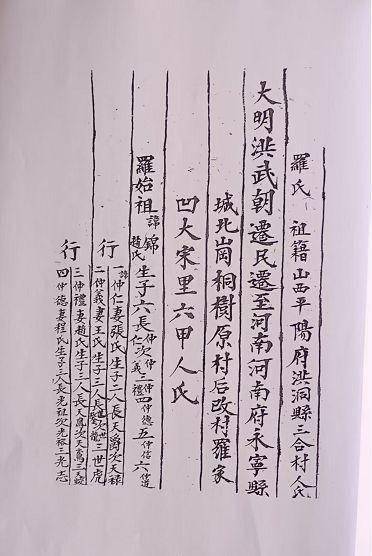 羅氏 祖籍山西平陽府洪洞縣三合村人氏
大明洪武朝遷民遷至河南河南府永寧縣
城北崗桐樹原村后改村羅家
凹大宋里六甲人氏
羅始祖諱錦趙氏生子六長仲仁次仲義三仲禮四仲德五仲信六仲道
行
一諱仲仁妻張氏生子二人長天爵次天祿
二仲義妻王氏生子三人長世次世三世虎
行
三仲禮妻趙氏生子三人長天息次天三天
四仲德妻程氏生子三人長光祖次光裕三光志